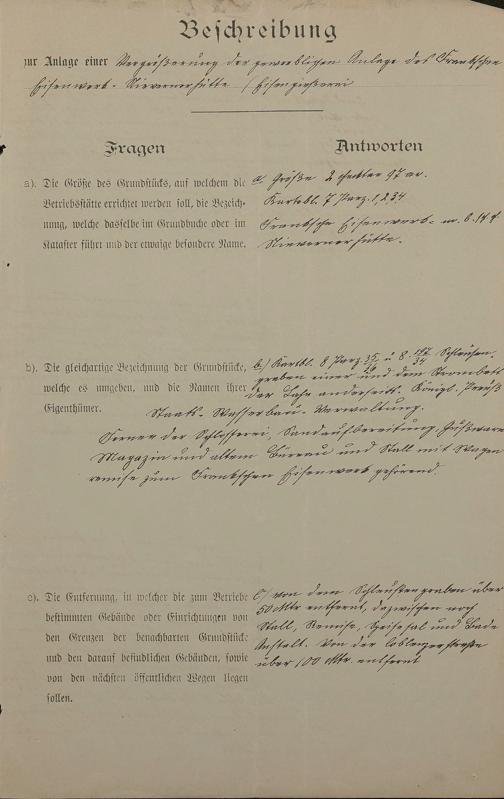 Beschreibung
zur Anlage einer Vergrößerung der gewerblichen Anlage des Frank'schen
Eisenwerk- Nievernerhütte (Eisengießerei
Fragen
Antworten
a). Die Größe des Grundstücks, auf welchem die
Betriebsstätte errichtet werden soll, die Bezeich-
nung, welche dasselbe im Grundbuche oder im
Kataster führt und der etwaige besondere Name.
a. Größe 2 Hektar 97 ar.
Kartebl. 7 Parz. 1, 2, 3, 4
Frank'sche Eisenwerk- m. b. H
Nievernerhütte.
b). Die gleichartige Bezeichnung der Grundstücke,
welche es umgeben, und die Namen ihrer
Eigenthümer.
b.) Kartbl. 8 Parz. u 8. Schleusen-
graben einer und dem Strombett
der Lahn anderseits. Königl. Preuß
Staats- Wasserbau- Verwaltung.
Ferner der Schlosserei, Sandaufbereitung, Gußwaren
Magazin und altem Büreau und Stall mit Wagen
remise zum Frank'schen Eisenwerk gehörend.
c). Die Entfernung, in welcher die zum Betriebe
bestimmten Gebäude oder Einrichtungen von
den Grenzen der benachbarten Grundstücke
und den darauf befindlichen Gebäuden, sowie
von den nächsten öffentlichen Wegen liegen
sollen.
c) von dem Schleusengraben über
50 Mtr entfernt, dazwischen noch
Stall, Remise, Speisesaal und Bade
Anstalt. Von der Coblenzerstraße
über 100 Mtr. entfernt